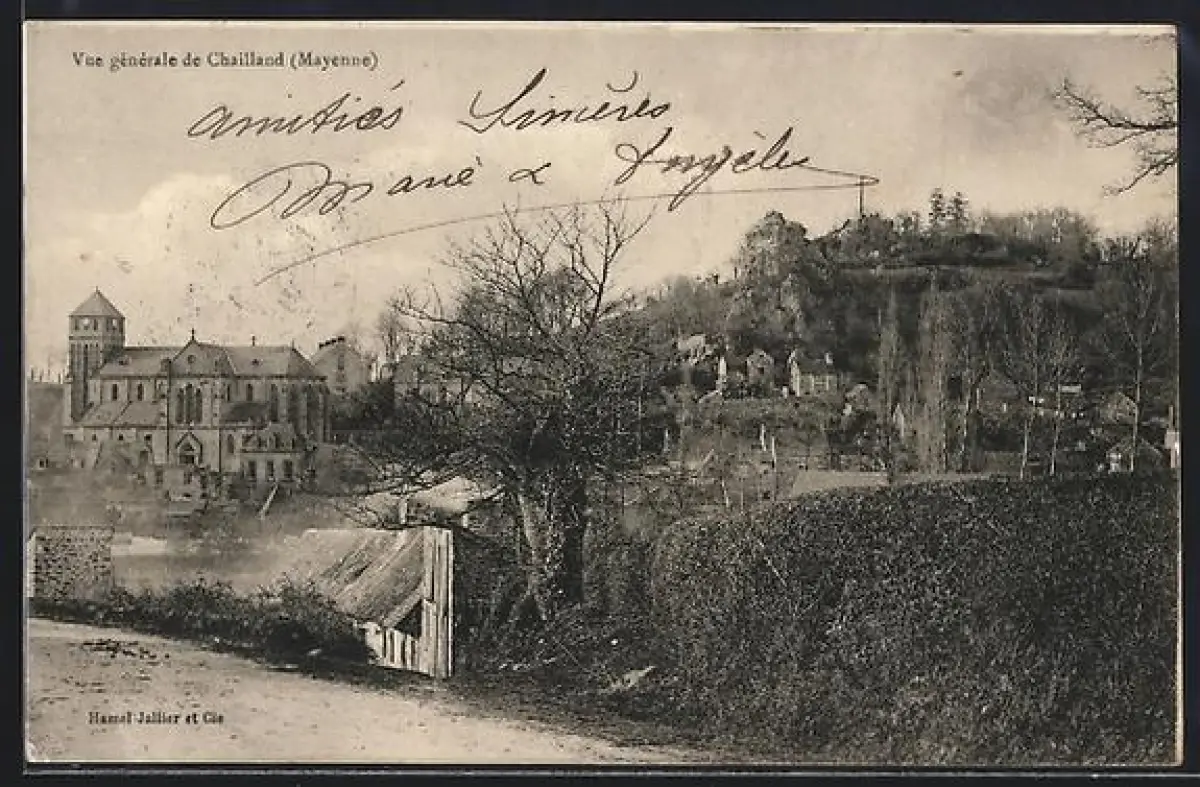 Vue générale de Chailland (Mayenne)
amitiés Sincères
Marie & Angèle
Hamel Jallier et Cie